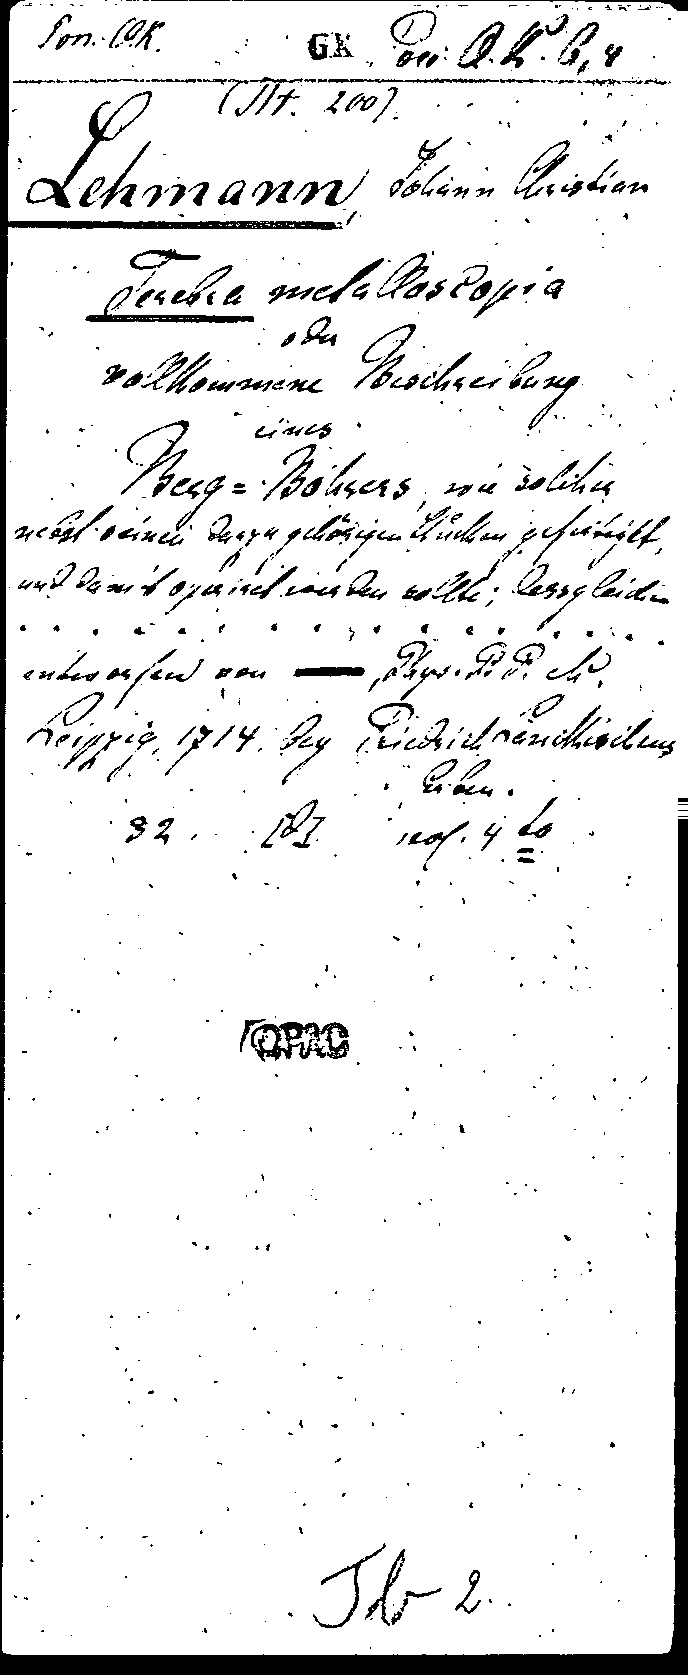 Pon. QK. GK Pon. Q.K. 6, 4
(Mt. 200)
Lehmann, Johann Christian
Terebra metalloscopia
oder
vollkommene Beschreibung
eines
Berg=Bohrers, wie solcher
nebst seinen darzu gehörigen Stücken gefertigt,
und damit operiret werden sollte; dessgleichen
. . . . . . . . . . . . . . . .
entworfen von —, Phys. P. P.
Leipzig, 1714. bey Friedrich Lanckischens
Erben.
32. 4 to
OPAC
2.